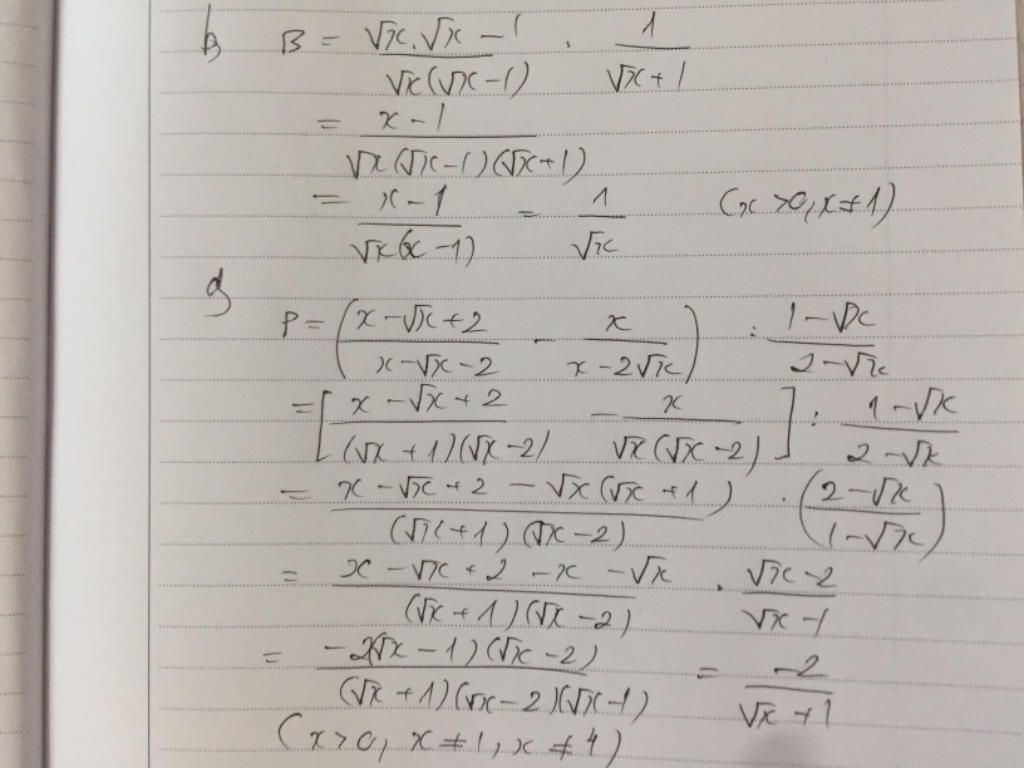 b, B = (√x.√x - 1)/(√x(√x - 1)) . 1/(√x + 1)
= (x - 1)/(√x(√x - 1)(√x + 1))
= (x - 1)/(√x(x - 1)) = 1/√x (x > 0, x ≠ 1)
P = ((x - √x + 2)/(x - √x - 2) - x/(x - 2√x)) : (1 - √x)/(2 - √x)
= [(x - √x + 2)/((√x + 1)(√x - 2) - x/(√x(√x - 2))] : (1 - √x)/(2 - √x)
= (x - √x + 2 - √x(√x + 1))/((√x + 1)(√x - 2)) . ((2 - √x)/(1 - √x))
= (x - √x + 2 - x - √x)/((√x + 1)(√x - 2)) . (√x - 2)/(√x - 1)
= (-2(√x - 1)(√x - 2))/((√x + 1)(√x - 2)(√x - 1)) = -2/(√x + 1)
(x > 0, x ≠ 1, x ≠ 4)